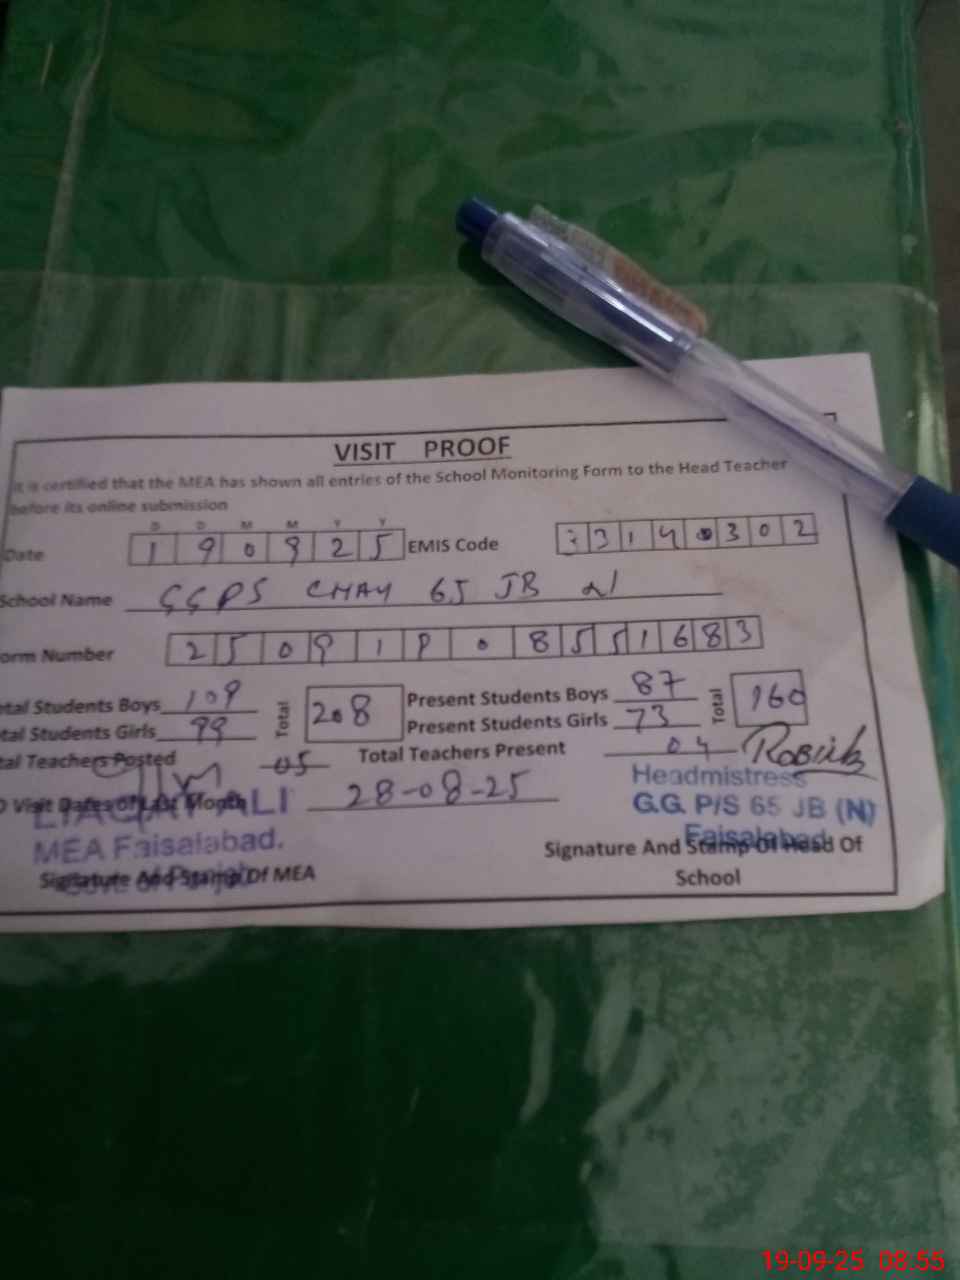 VISIT PROOF
It is certified that the MEA has shown all entries of the School Monitoring Form to the Head Teacher
before its online submission
D D M M Y Y
Date 190925 EMIS Code 33140302
School Name GGPS CHAK 65 JB N
orm Number 250919085551683
otal Students Boys 109 Total 208 Present Students Boys 87 Total 160
otal Students Girls 99 Present Students Girls 73
tal Teachers Posted 05 Total Teachers Present 04
O Visit Dates of Last Month 28-08-25
LIAQAT ALI
MEA Faisalabad.
Govt. of Punjab
Signature And Stamp Of MEA
Robina
Headmistress
G.G. P/S 65 JB (N)
Faisalabad
Signature And Stamp Of Head Of
School
19-09-25 08:55